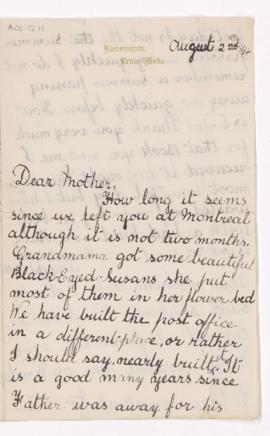 Acc 1211
August 2nd
Dear Mother,
How long it seems
since we left you at Montreal
although it is not two months.
Grandmama got some beautiful
Black-Eyed-Susans she put
most of them in her flower bed
We have built the post office
in a different place, or rather
I should say, nearly built. It
is a good many years since
Father was away for his